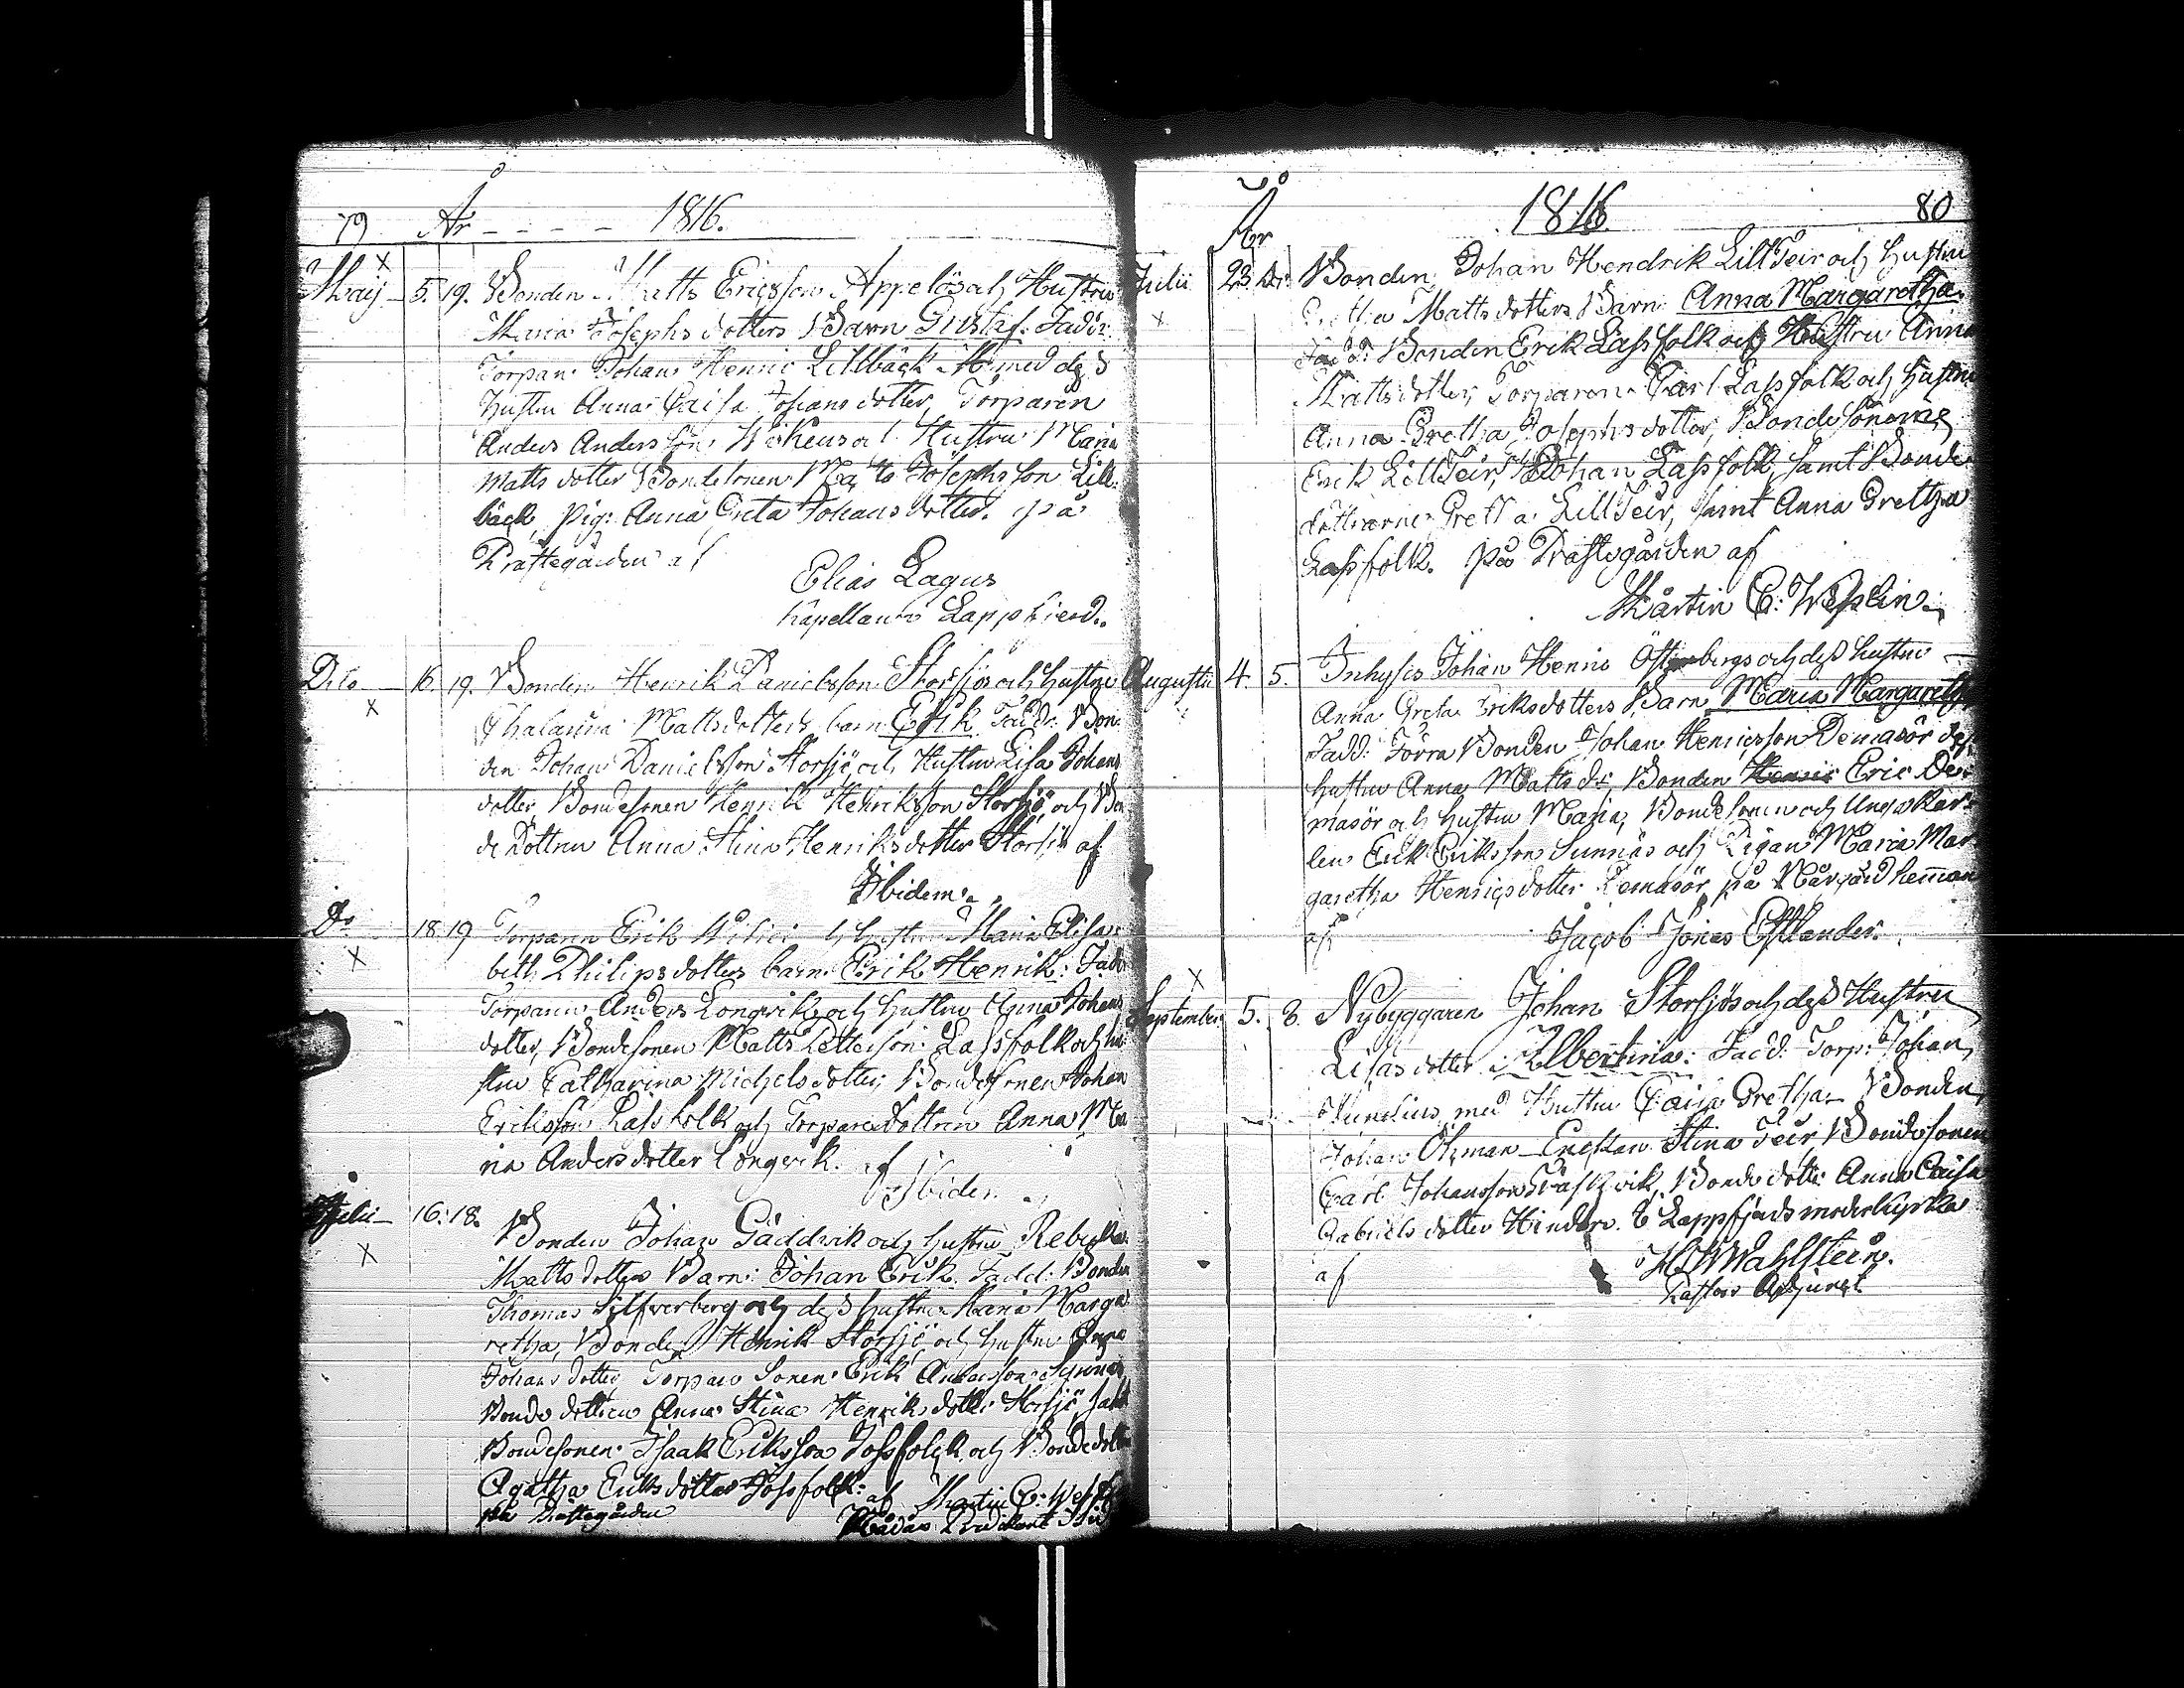 79 År - - - - 1816.
Maij 5. 19. Bonden Matts Ericsson Appelös och Hustru
Maria Josephs dotters Barn Gustaf. Fadd:
Torpar: Johan Henric Lillbäck med dess
hustru Anna Caisa Johans dotter, Torparen
Anders Anders son och Hustru Maria
Matts dotter Bondesonen Matts Josephsson Lill-
bäck, Pig: Anna Greta Johans dotter. på
Prästegården af
Elias Lagus
Kapellan i Lappfierd.
Dito 16. 19. Bonden Henrik Danielsson Storsjös och hustru
Mattsdotters barn Erik Fadd: Bon-
den Johan Danielsson Storsjö och Hustru Lisa Johans
dotter, Bondesonen Henrik Henriksson Storsjö och Bon
de Dottren Anna Stina Henriksdotter Storsjö af
Ibidem.
Do 18. 19 Torparen Erik hustru Maria Elisa-
beth Philipsdotters barn Erik Henrik: Fadd:
Torparen Anders Längvik och hustru Anna Johans
dotter, Bondesonen Matts Petterson Lassfolk och hu-
stru Catharina Michelsdotter, Bondesonen Johan
Eriksson Lassfolk och Torparedottren Anna Ma
ria Andersdotter Längvik. af
Ibidem.
Julii 16. 18. Bonden Johan Gäddvik och hustru Rebecka
Mattsdotters Barn: Johan Erik. Fadd: Bonden
Thomas Silfverberg och dess hustru Maria Marga
retha, Bonden Henrik Storsjö och hustru Anna
Johansdotter Torpare Sonen Erik Andersson
Bondedottren Anna Stina Henriksdotter Storsjö samt
Bondesonen Isaak Eriksson Jossfolk och Bondedott
Agatha Eriksdotter Jossfolk: af Martin C: Wess
på Prästegården
År 1816 80
Julii 23. Do: Bonden Johan Hendrik LillTeir och hustru
Gretha Mattsdotters Barn Anna Margaretha.
Fadd: Bonden Erik Lassfolk och Hustru Anna
Mattsdotter, Torparen Carl Lassfolk och hustru
Anna Gretha Josephsdotter, Bondesönerne
Erik LillTeir, Johan Lassfolk, samt Bonde
döttrarne Gretha LillTeir, samt Anna Gretha
Lassfolk. På Prästegården af
Martin C: Wesslin.
Augusti 4. 5. Inhysis Johan Henric Österbergs och dess hustru
Anna Greta Eriksdotters Barn Maria Margaretha
Fadd: Förra Bonden Johan Henricsson Demasör dess
hustru Anna Matts dr, Bonden Eric De-
masör och hustru Maria, Bondesonen och Unga Kar-
len Erik Eriksson Sunnäs och Pigan Maria Mar-
garetha Henricsdotter Demasör, på hemman
af Jacob Jonas Estlander.
September 5. 8. Nybyggaren Johan Storsjös och dess Hustru
Lisas dotter: Albertina: Fadd: Torp: Johan
med Hustru Caisa Gretha Bonden
Johan Öhman Enckan Stina Teir Bondesonen
Carl Johansson Bondedotter Anna Caisa
Gabrielsdotter Hinders. I Lappfjerds moderkyrka
af Wahlstein.
Pastors Adjunct